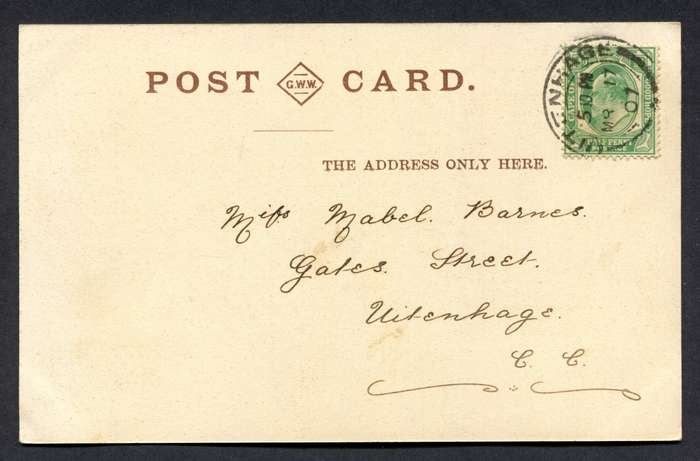 POST G.W.W. CARD.
THE ADDRESS ONLY HERE.
Miss Mabel. Barnes.
Gates. Street.
Uitenhage.
C. C.
UITENHAGE
5 30 PM
MR 17
07
HALFPENNY